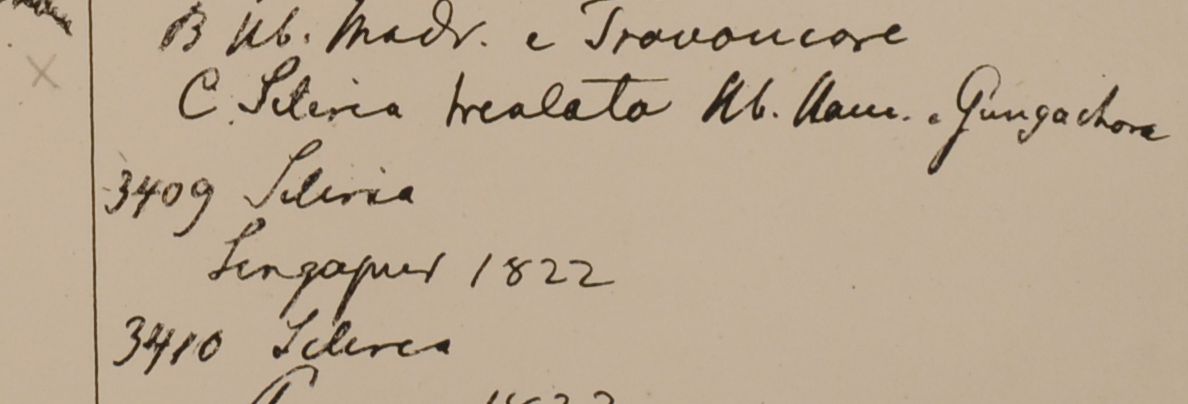 B Hb. Madr. e Travancore
C. Scleria trealata Hb. Ham. e Gungachora
3409 Scleria
Singapur 1822
3410 Scleria
1822